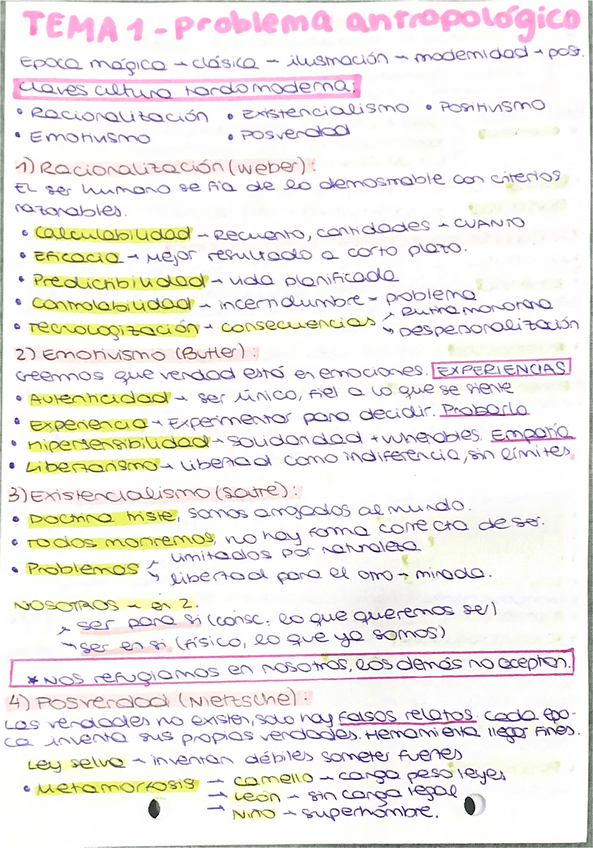 TEMA 1 - Problema antropológico
Epoca mágica → clásica → ilustración → modernidad → pos.
Claves cultura tardomoderna:
• Racionalización • Existencialismo • Positivismo
• Emotivismo • Posverdad
1) Racionalización (Weber):
El ser humano se fía de lo demostrable con criterios
razonables.
• Calculabilidad → Recuento, cantidades → CUANTO
• Eficacia → Mejor resultado a corto plazo.
• Predictibilidad → vida planificada
• Controlabilidad → incertidumbre = problema
• Tecnologización → consecuencias → Rutina monotona
→ Despersonalización
2) Emotivismo (Butler):
Creemos que verdad está en emociones. EXPERIENCIAS
• Autenticidad → ser único, fiel a lo que se siente
• Experiencia → Experimentar para decidir. Probarlo
• Hipersensibilidad → Solidaridad + vulnerables. Empatía
• Libertarismo → libertad como indiferencia, sin límites.
3) Existencialismo (Satre):
• Doctrina triste, somos arrojados al mundo.
• Todos moriremos, no hay forma correcta de ser.
• Problemas → limitados por naturaleza
→ libertad para el otro → mirada.
NOSOTROS → en 2.
→ ser para si (consc. lo que queremos ser)
→ ser en si (físico, lo que ya somos)
* Nos refugiamos en nosotros, los demás no aceptan.
4) Posverdad (Nietzsche):
Las verdades no existen, solo hay falsos relatos. Cada épo-
ca inventa sus propias verdades. Herramienta llegar fines.
Ley selva → inventan débiles someter fuertes
• Metamorfosis → camello → carga peso leyes
→ León → sin carga legal
→ Niño → superhombre.